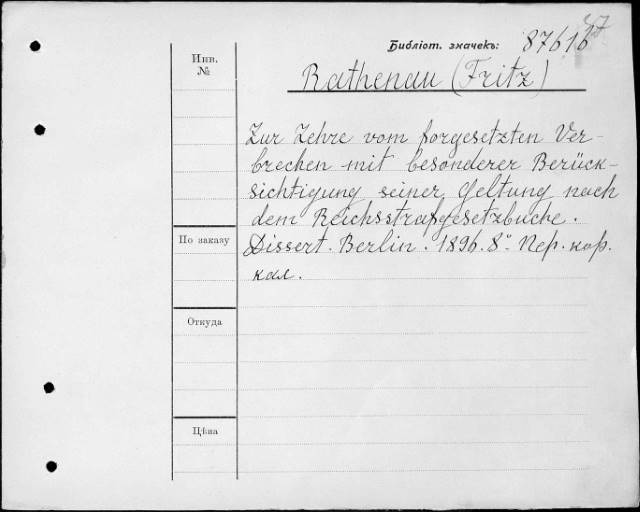 Библіот. значекъ: 87616
Инв.
№
Rathenau (Fritz)
Zur Lehre vom forgesetzten Ver-
brechen mit besonderer Berück-
sichtigung seiner Geltung nach
dem Reichsstrafgesetzbuche.
По заказу
Dissert. Berlin. 1896. 8°. Пер. кор.
кал.
Откуда
Цѣна